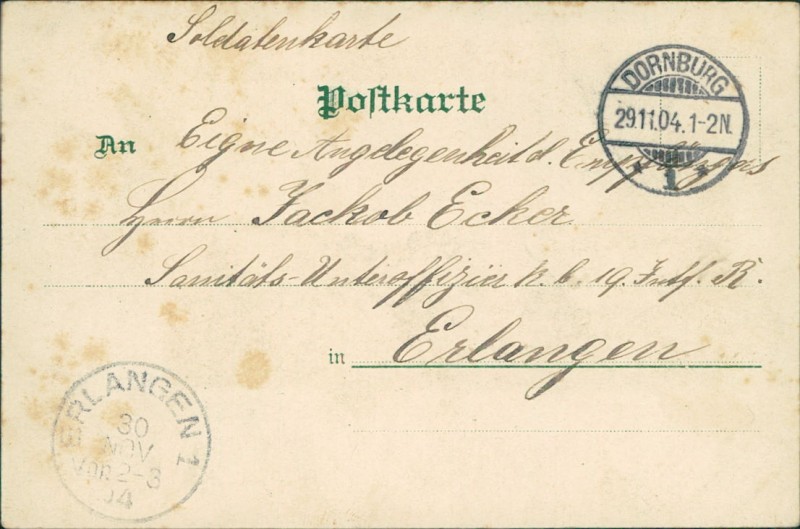 Soldatenkarte
Postkarte
DORNBURG
29.11.04. 1-2N.
* 1 *
An Eigne Angelegenheit d. Empfängers
Herrn Jackob Ecker.
Sanitäts-Unteroffizier k. b. 19. Inft. R.
in Erlangen
ERLANGEN 1
30
NOV
Vor. 2-3
04